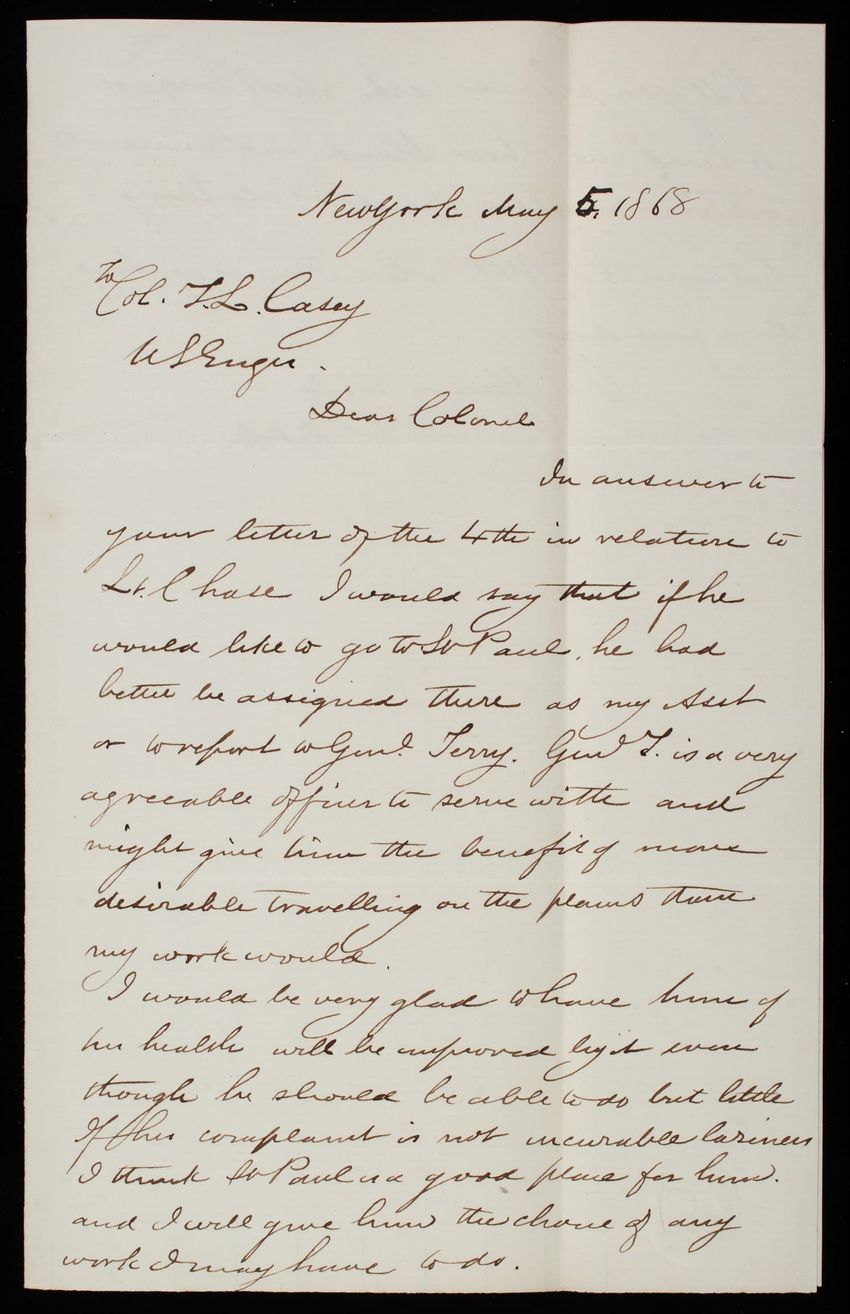 New York May 5. 1868
To Col. T. L. Casey
U S Engrs.
Dear Colonel
In answer to
your letter of the 4th in relation to
Lt. Chase I would say that if he
would like to go to St Paul, he had
better be assigned there as my Asst
or to report to Genl. Terry. Genl T. is a very
agreeable officer to serve with and
might give him the benefit of more
desirable travelling on the plains than
my work would.
I would be very glad to have him if
his health will be improved by it even
though he should be able to do but little
If his complaint is not incurable laziness
I think St Paul is a good place for him.
and I will give him the choice of any
work I may have to do.